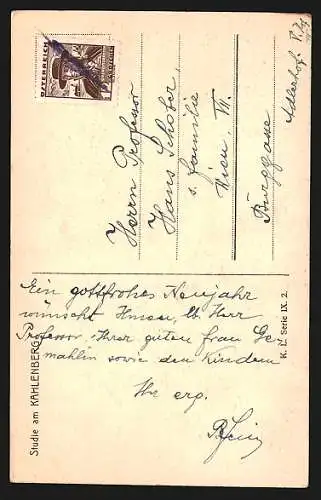 ÖSTERREICH
Herrn Professor
Hans Schober
s. Familie
Wien, VII.
Burggasse
Adlerhof.
Ein gottfrohes Neujahr
wünscht Ihnen, lb. Herr
Professor, Ihrer guten Frau Ge-
mahlin sowie den Kindern
Ihr erg.
Studie am KAHLENBERG
K. L. Serie IX. 2.